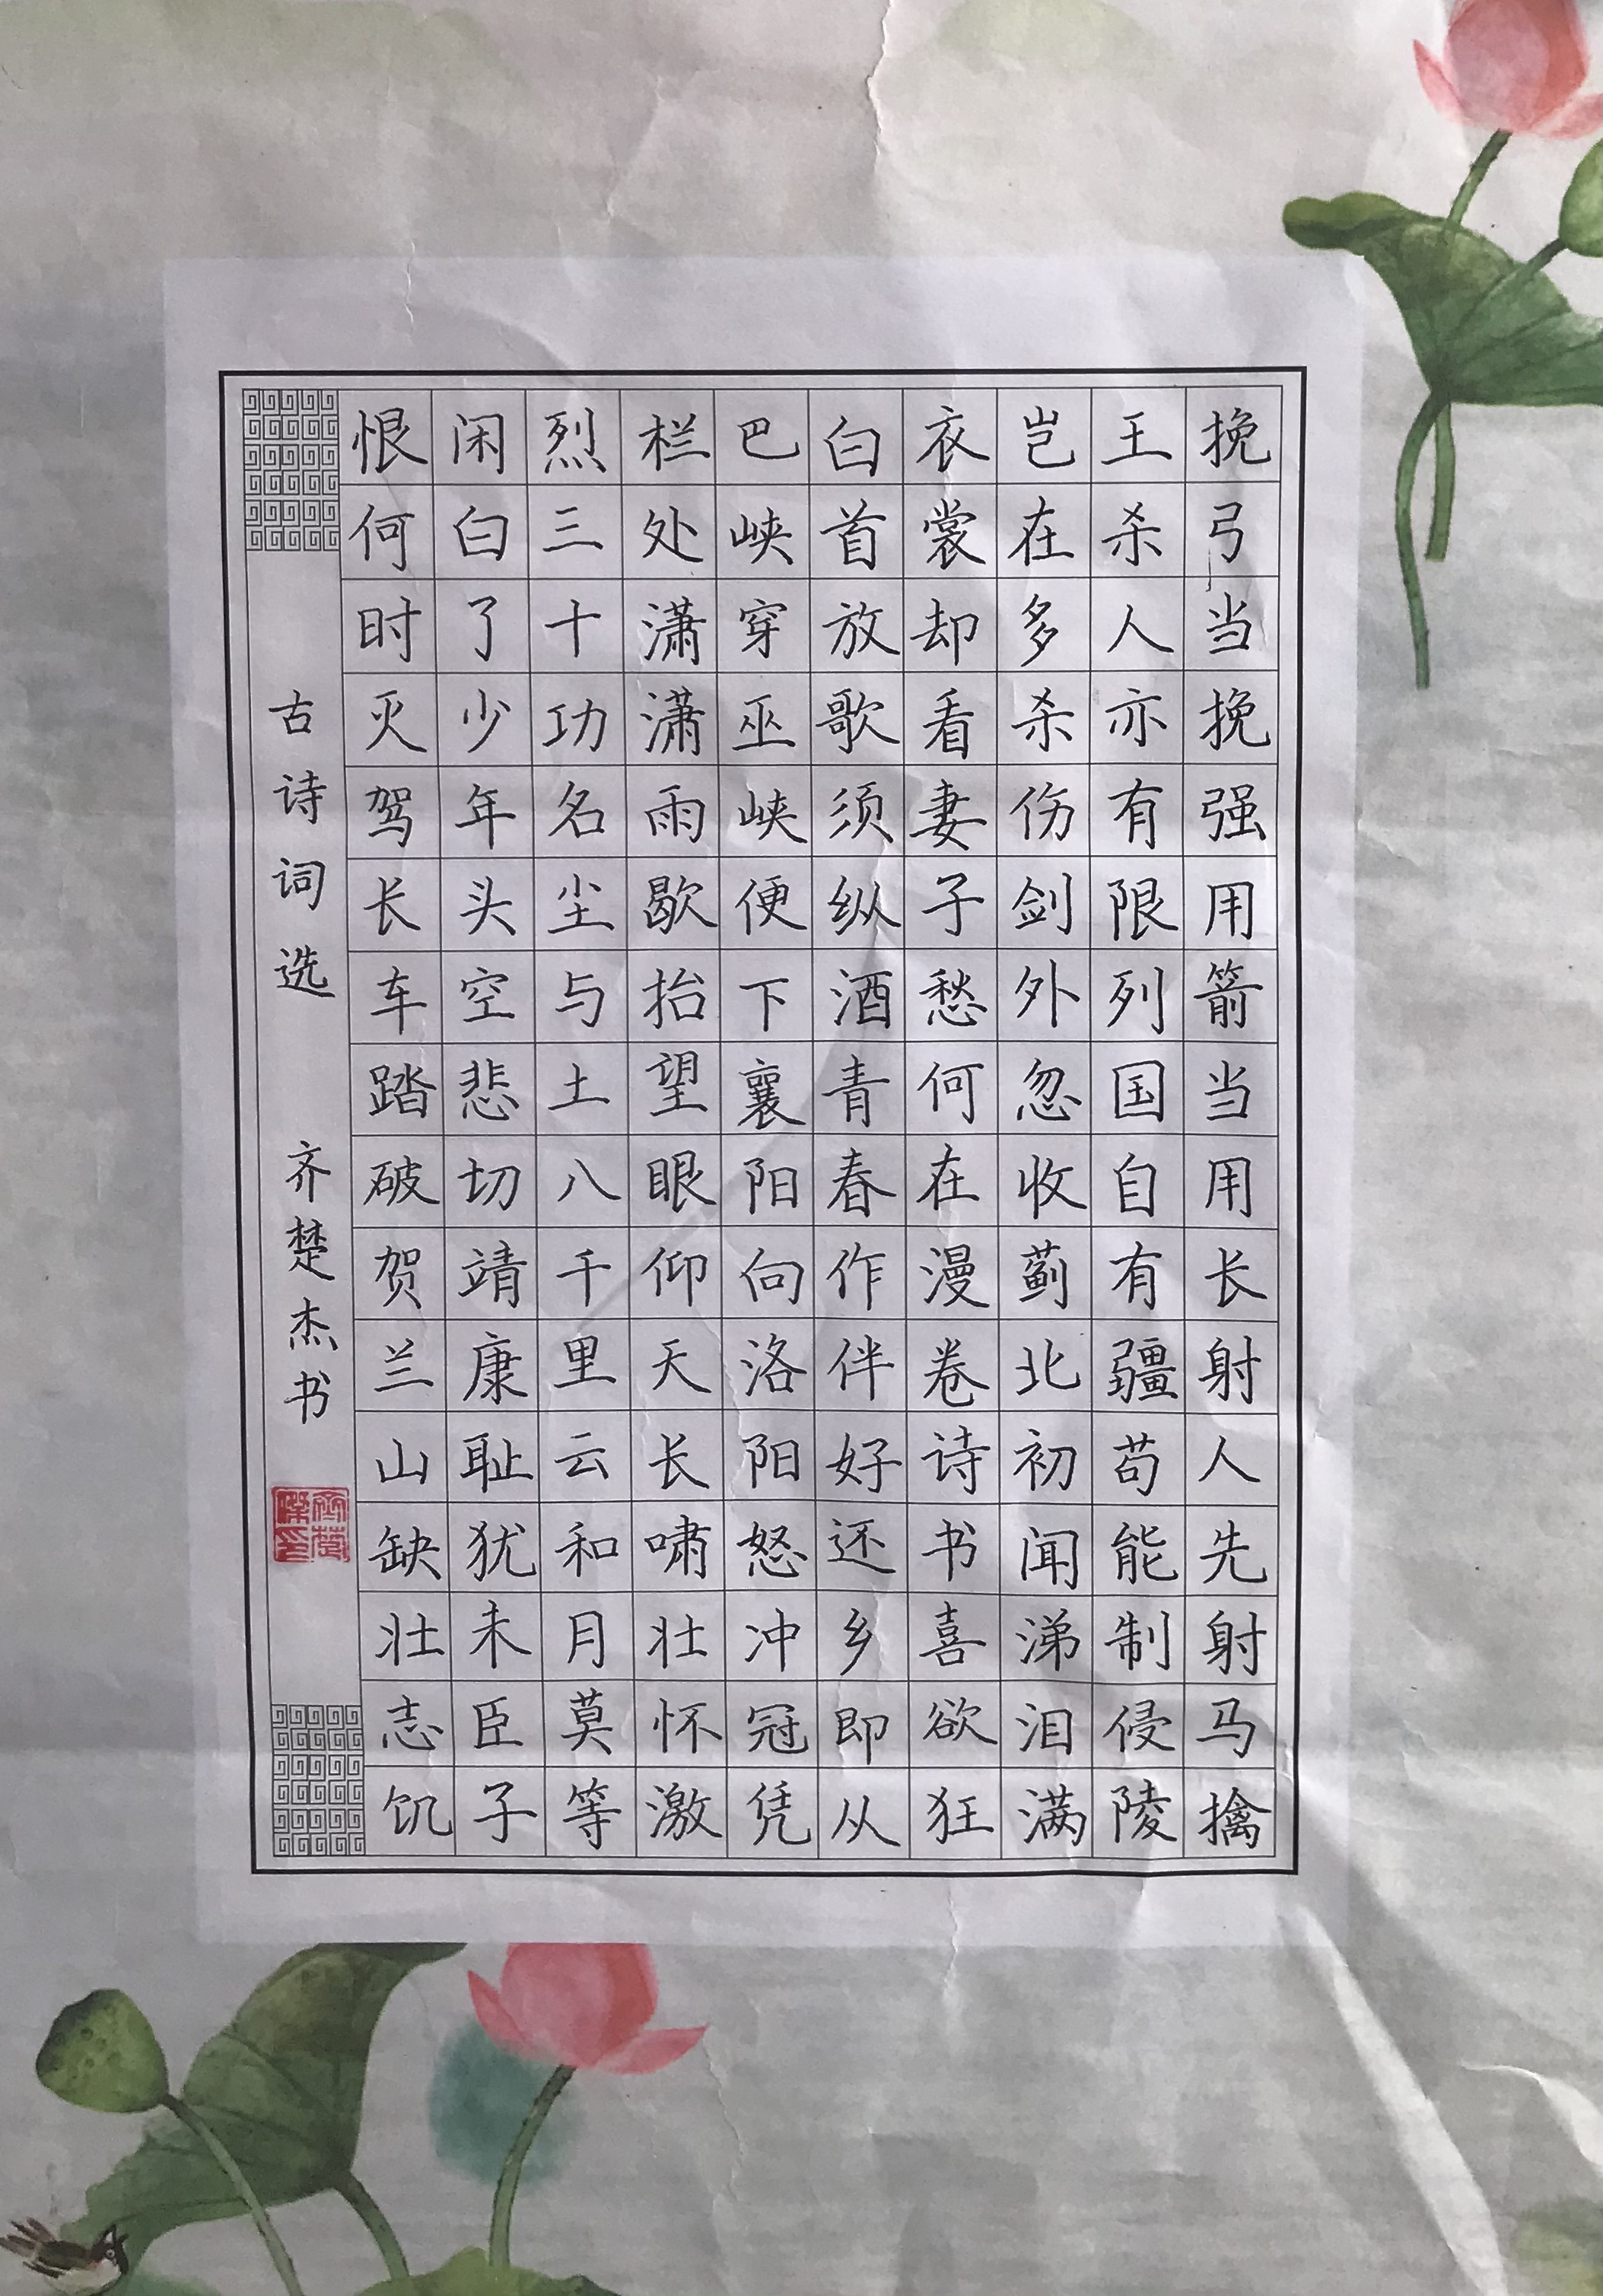 挽弓当挽强用箭当用长射人先射马擒
王杀人亦有限列国自有疆苟能制侵陵
岂在多杀伤剑外忽收蓟北初闻涕泪满
衣裳却看妻子愁何在漫卷诗书喜欲狂
白首放歌须纵酒青春作伴好还乡即从
巴峡穿巫峡便下襄阳向洛阳怒冲冠凭
栏处潇潇雨歇抬望眼仰天长啸壮怀激
烈三十功名尘与土八千里云和月莫等
闲白了少年头空悲切靖康耻犹未臣子
恨何时灭驾长车踏破贺兰山缺壮志饥
古诗词选 齐楚杰书
齐楚杰印